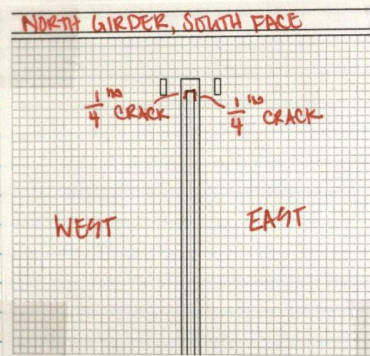 NORTH GIRDER, SOUTH FACE
1/4" CRACK
1/4" CRACK
WEST
EAST